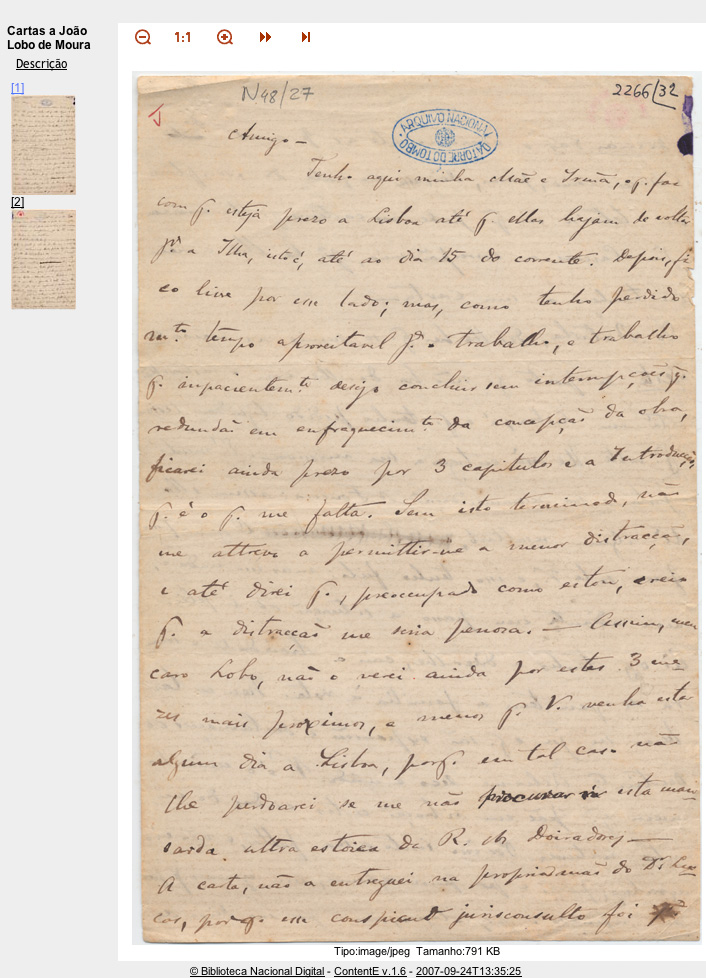 Cartas a João
Lobo de Moura
Descrição
[1]
[2]
1:1
N48/27
2266/32
ARQUIVO NACIONAL
DA TORRE DO TOMBO
Amigo —
Tenho aqui minha Mãe e Irmã, o q. faz
com q. esteja prezo a Lisboa até q. ellas hajam de voltar
pª. a Ilha, isto é, até ao dia 15 do corrente. Depois, fi
co livre por um lado; mas, como tenho perdido
mto. tempo aproveitavel pª. o trabalho, e trabalho
q. impacientemte. desejo concluir sem interrupções q.
redundão em enfraquecimto. da concepção da obra,
ficarei ainda prezo por 3 capitulos e a Introducção,
q. é o q. me falta. Sem isto terminado, não
me attrevo a permittir-me a menor distracção,
e até direi q., preoccupado como estou, creio
q. a distracção me seria penosa. — Assim, meu
caro Lobo, não o verei ainda por estes 3 me-
zes mais proximos, a menos q. V. venha esta
algum dia a Lisboa, porq. em tal caso não
lhe perdoarei se me não procurar esta man-
sarda ultra estoica da R. dos Douradores —
A carta, não a entreguei na propria mão do Dr. Lu
cas, porq. um conspicuo jurisconsulto foi
Tipo:image/jpeg Tamanho:791 KB
© Biblioteca Nacional Digital - ContentE v.1.6 - 2007-09-24T13:35:25